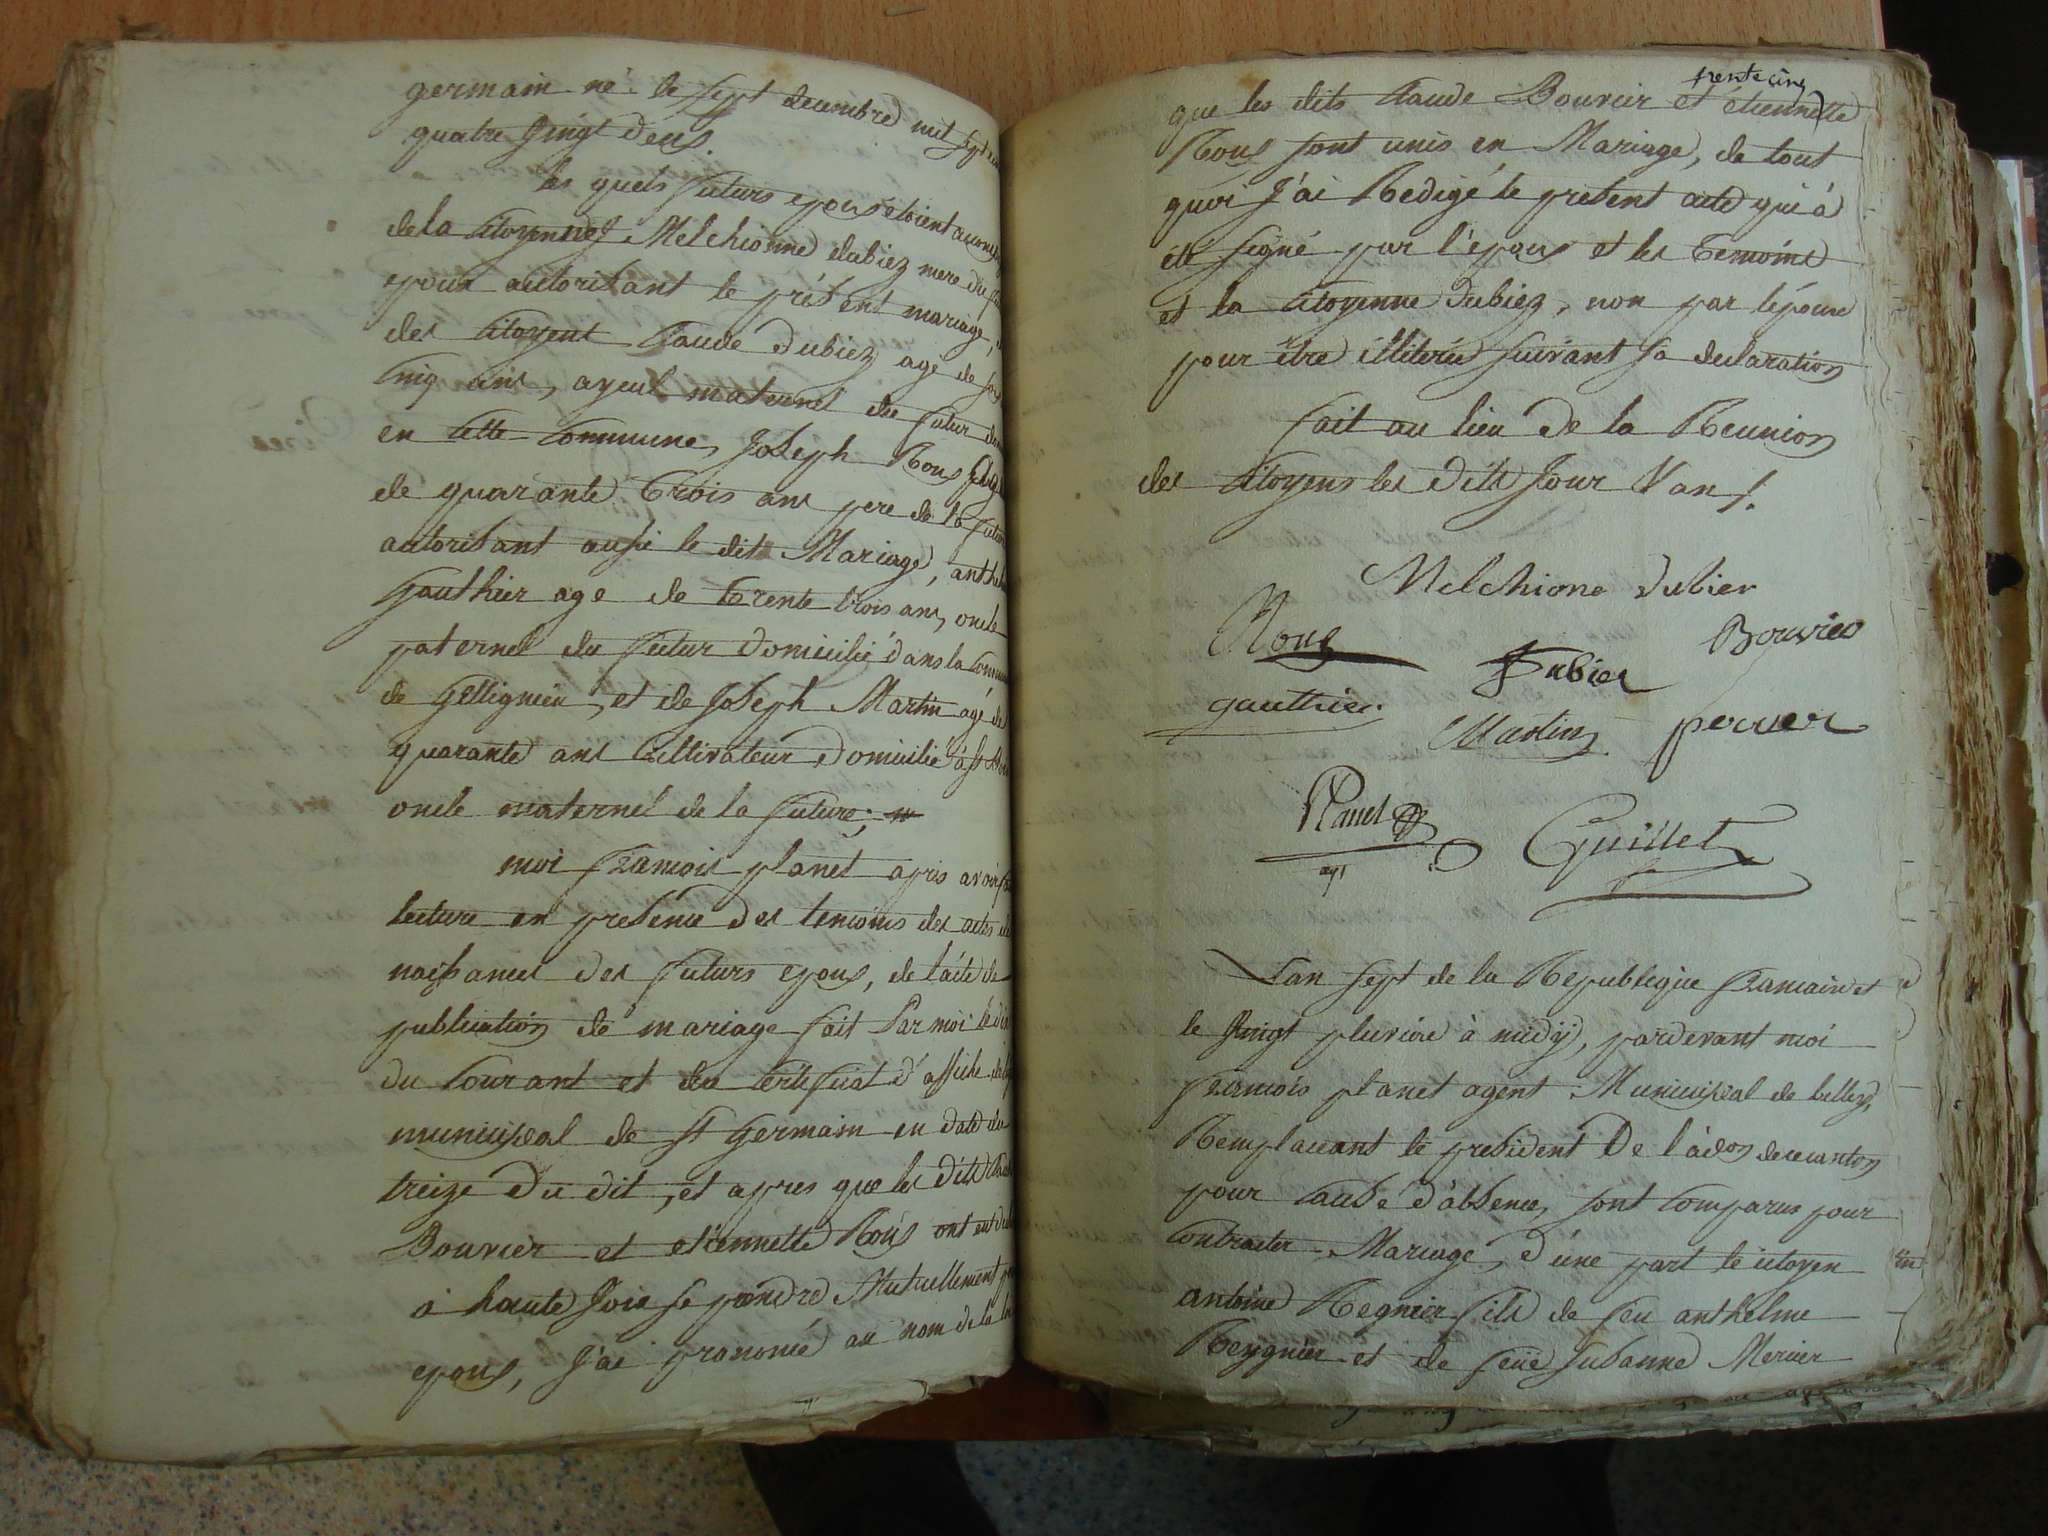 germain né le sept decembre mil sept cen
quatre vingt deux.
les quels futurs epoux etoient accomp
de la Citoyenne Melchionne dubiez mere du
epoux autorisant le présent mariage,
des Citoyens Claude Dubiez agé de soi
Cinq ans, ayeul maternel du futur
en cette Commune, Joseph Roux
de quarante trois ans pere de la future
autorisant aussi le dit Mariage, anthel
Gauthier age de trente trois ans, oncle
paternel du futur Domicilié dans la Commune
de Gellignieu, et de Joseph Martin agé de
quarante ans Cultivateur Domicilié à st
oncle maternel de la future;
moi francois planet apres avoir
lecture en presence des temoins des actes de
naissances des futurs epoux, de l'acte de
publication de mariage fait Par moi le dix
du Courant et du Certificat d'affiche
municipal de st germain en date du
treize du dit, et apres que les dits
Bouvier et etiennette Roux ont
a haute voix se prendre Mutuellement
epoux, J'ai prononcé au nom de la loi
trente cinq
que les dits Claude Bouvier et étiennette
Roux sont unis en Mariage, de tout
quoi J'ai Redigé le present acte qui à
été signé par l'epoux et les temoins
et la Citoyenne Dubiez, non par l'épouse
pour être illiterée suivant sa declaration
fait au lieu de la Reunion
des Citoyens les Dits Jour & an /.
Melchione dubier
Roux Dubier Bouvier
gauthier Martin perrier
Planet Guillet
agt
L'an sept de la Republique francaise et
le vingt pluviose à midy, pardevant moi
francois planet agent Municipal de belley,
Remplacant le president De l'adon de ce canton
pour Cause d'absence, sont Comparus pour
Contracter Mariage, d'une part le citoyen
antoine Regnier fils de feu anthelme
Reygnier et de feüe susanne Mercier